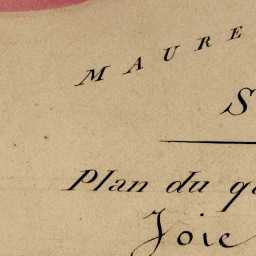 MAURE
S
Plan du qu
Joie